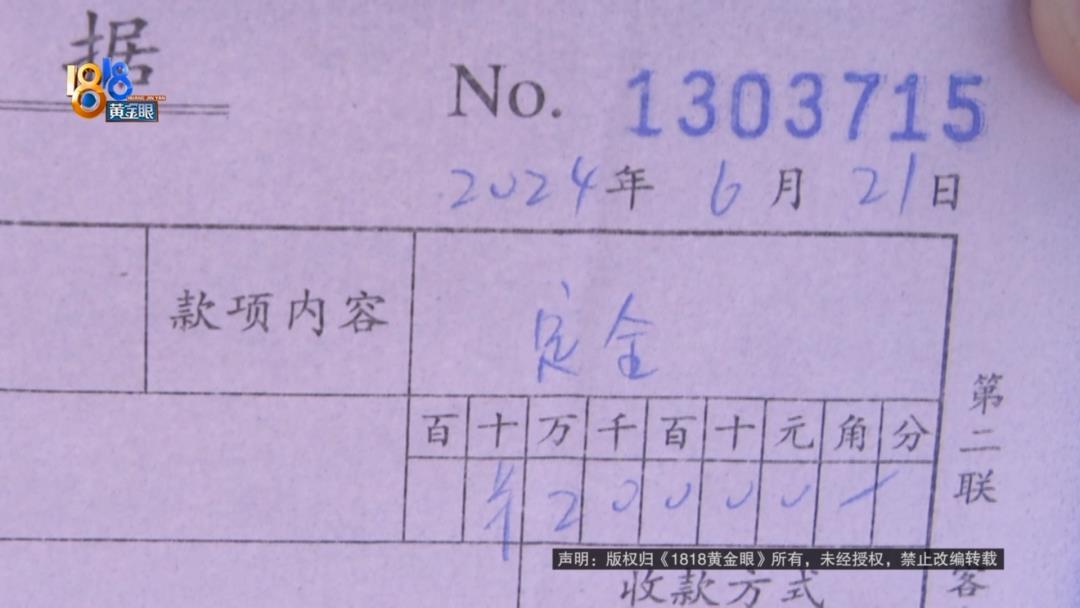 据
1818
HUANG JIN YAN
黄金眼
No. 1303715
2024年 6月 21日
款项内容
定金
百十万千百十元角分
¥20000
第二联
客
声明：版权归《1818黄金眼》所有，未经授权，禁止改编转载
收款方式